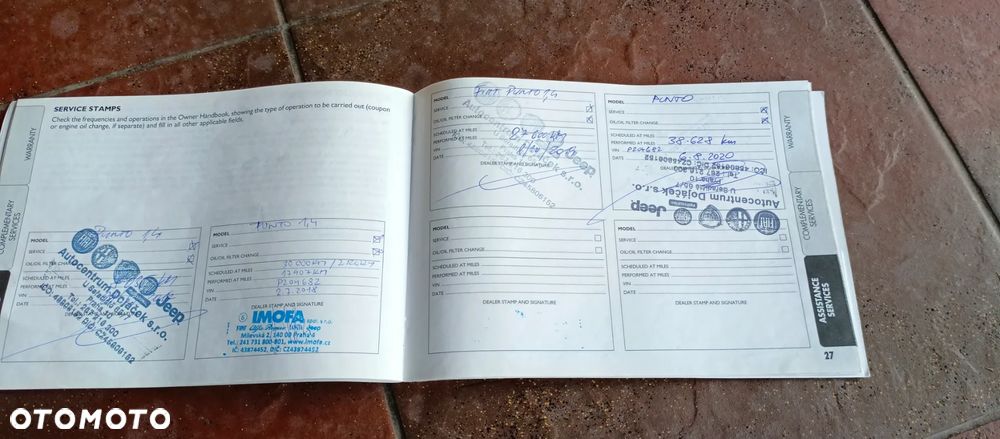 SERVICE STAMPS
Check the frequencies and operations in the Owner Handbook, showing the type of operation to be carried out (coupon
or engine oil change, if separate) and fill in all other applicable fields.
WARRANTY
COMPLEMENTARY
SERVICES
MODEL PUNTO 1,4
SERVICE
OIL/OIL FILTER CHANGE
SCHEDULED AT MILES
PERFORMED AT MILES
VIN
DATE
Autocentrum Dojáček s.r.o.
Jeep
MODEL PUNTO 1,4
SERVICE
OIL/OIL FILTER CHANGE
SCHEDULED AT MILES 30 000 KM / 2 ROKY
PERFORMED AT MILES 17407 KM
VIN P204682
DATE 2.7.2018
DEALER STAMP AND SIGNATURE
IMOFA spol. s r.o.
FIAT Alfa Romeo LANCIA Jeep
Milevská 2, 140 00 Praha 4
Tel.: 241 731 800-801, www.imofa.cz
IČ: 43874452, DIČ: CZ43874452
MODEL FIAT PUNTO 1,4
SERVICE
OIL/OIL FILTER CHANGE
SCHEDULED AT MILES
PERFORMED AT MILES
VIN
DATE
DEALER STAMP AND SIGNATURE
Jeep
MODEL PUNTO
SERVICE
OIL/OIL FILTER CHANGE
SCHEDULED AT MILES
PERFORMED AT MILES 38.628 km
VIN P204682
DATE 6.8.2020
Autocentrum Dojáček s.r.o.
Jeep
MODEL
SERVICE
OIL/OIL FILTER CHANGE
SCHEDULED AT MILES
PERFORMED AT MILES
VIN
DATE
DEALER STAMP AND SIGNATURE
MODEL
SERVICE
OIL/OIL FILTER CHANGE
SCHEDULED AT MILES
PERFORMED AT MILES
VIN
DATE
DEALER STAMP AND SIGNATURE
WARRANTY
COMPLEMENTARY
SERVICES
ASSISTANCE
SERVICES
27
OTOMOTO